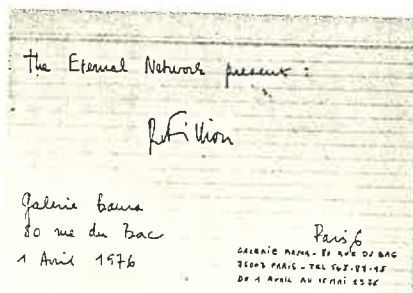 The Eternal Network present :
R. Filliou
Galerie
80 rue du Bac
1 Avril 1976
Paris 6
GALERIE - 80 RUE DU BAC
75007 PARIS - TEL
DU 1 AVRIL AU 15 MAI 1976